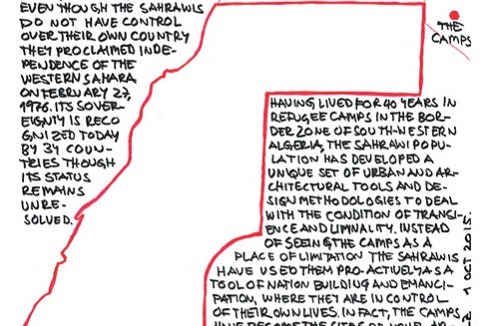 EVEN THOUGH THE SAHRAWIS
DO NOT HAVE CONTROL
OVER THEIR OWN COUNTRY
THEY PROCLAIMED INDE-
PENDENCE OF THE
WESTERN SAHARA
ON FEBRUARY 27,
1976. ITS SOVER-
EIGNTY IS RECO
GNIZED TODAY
BY 34 COUN-
TRIES THOUGH
ITS STATUS
REMAINS
UNRE-
SOLVED.
THE
CAMPS
HAVING LIVED FOR 40 YEARS IN
REFUGEE CAMPS IN THE BOR-
DER ZONE OF SOUTH-WESTERN
ALGERIA, THE SAHRAWI POPU-
LATION HAS DEVELOPED A
UNIQUE SET OF URBAN AND AR-
CHITECTURAL TOOLS AND DE-
SIGN METHODOLOGIES TO DEAL
WITH THE CONDITION OF TRANSI-
ENCE AND LIMINALITY. INSTEAD
OF SEEING THE CAMPS AS A
PLACE OF LIMITATION THE SAHRAWIS
HAVE USED THEM PRO-ACTIVELY AS A
TOOL OF NATION BUILDING AND EMANCI-
PATION, WHERE THEY ARE IN CONTROL
OF THEIR OWN LIVES. IN FACT, THE CAMPS
1 OCT 2015.